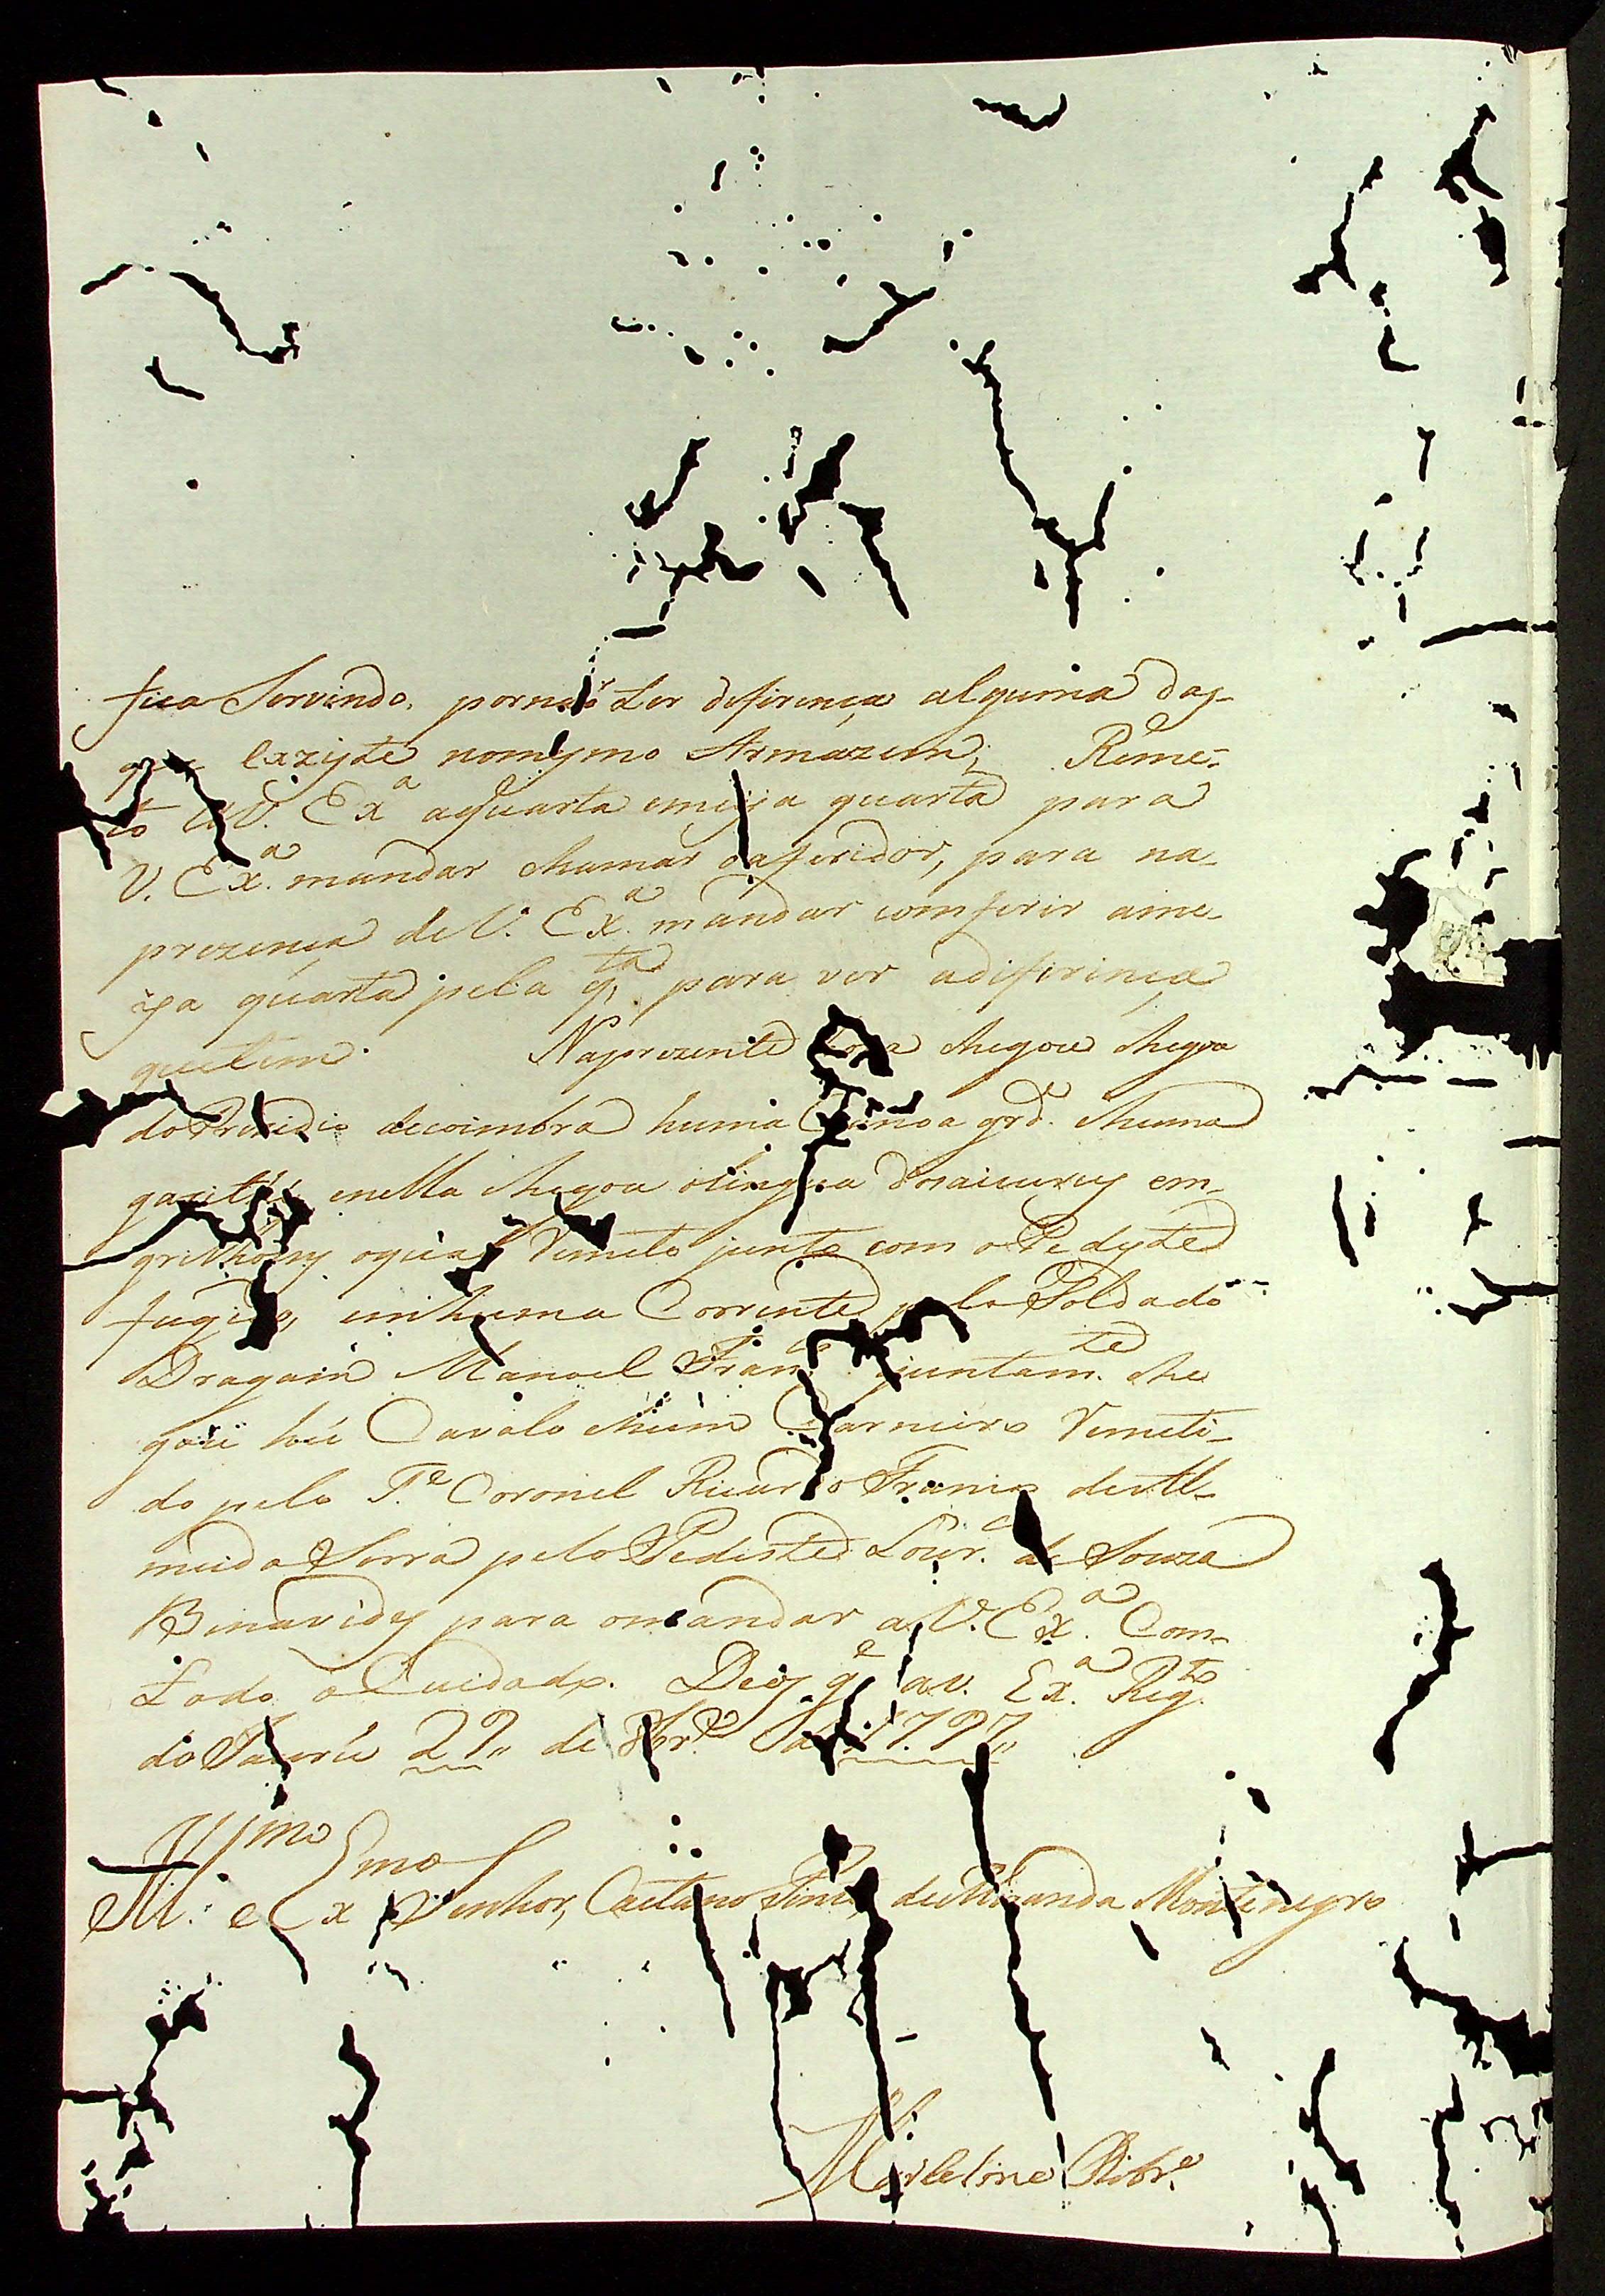 fica Servindo, por não Ser diferença alguma das
que exziste nomesmo Armazem; Reme-
to aV. Exa aquarta emeya quarta para
V. Exa. mandar chamar oaferidor, para na
prezença deV. Exa. mandar comferir ame-
ya quarta pela qta para ver adiferença
quetem. Naprezente chegou chegou
doPrezidio decoimbra huma Canoa grde. ehuma
enella chegou olingua em
grilhoens oqual Vemeto junto com oPedeste
fugido, emhuma Corrente pelo Soldado
Dragaiñ Manoel Franco juntamte. che
gou hú Cavalo ehum Carneiro Vemeti-
do pelo Te. Coronel Ricardo Franco deAl-
meida Serra pelo Pedeste Lour.co de Souza
Benavides para omandar a V. Exa. Com
todo o Cuidado. Deos ge a V. Exa. Regto.
do 29,, de 8bro de 1797,,
Illmo e Exmo Senhor, Caetano Pinto deMiranda Montenegro
Marcelino Ribro